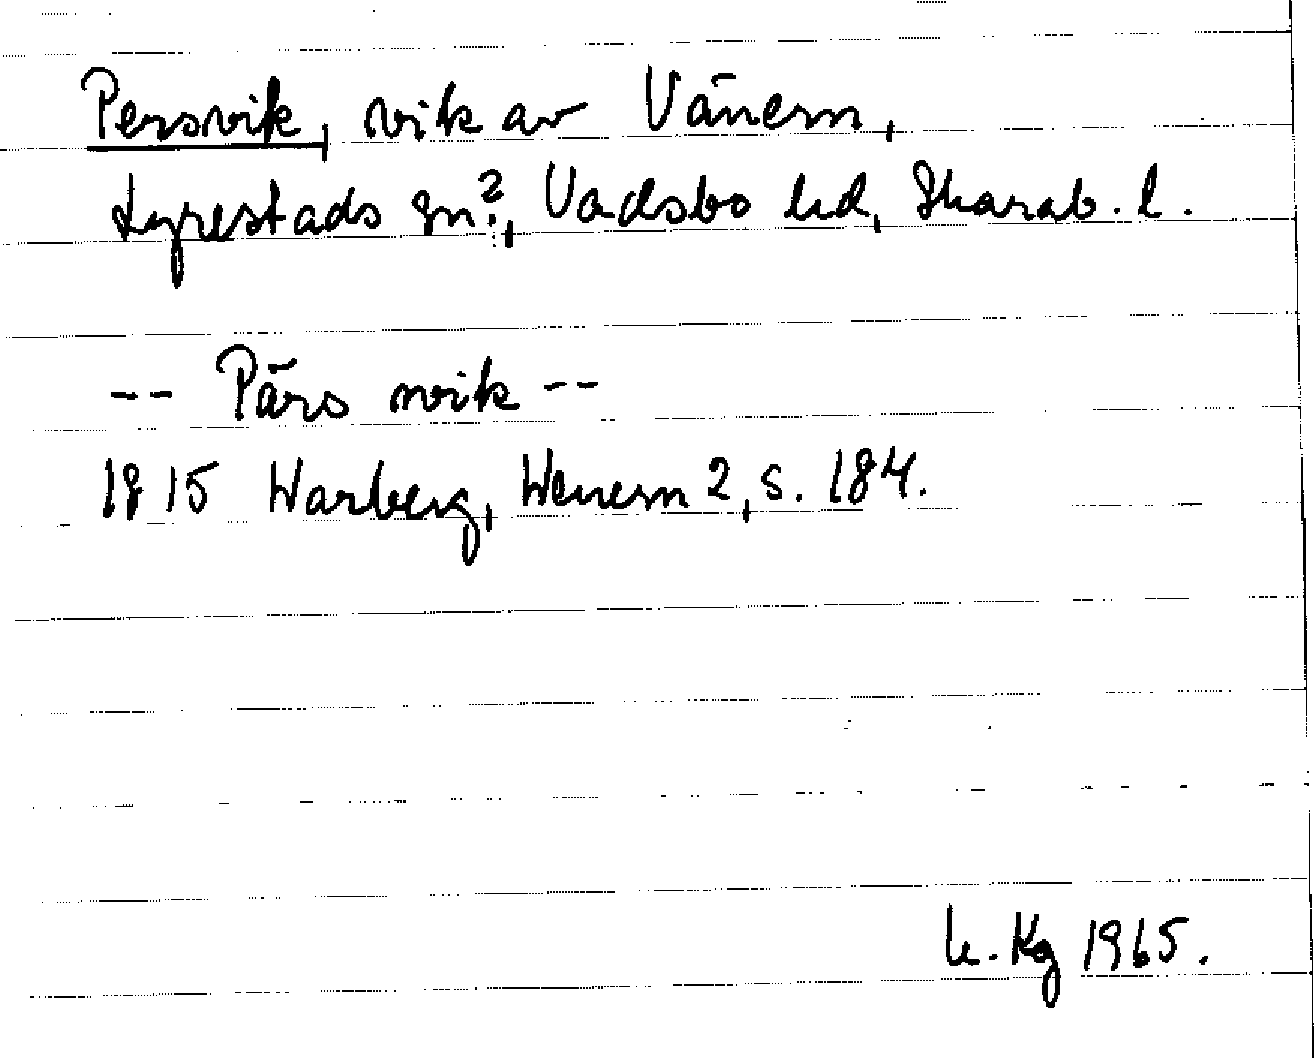 Persvik, vik av Vänern,
Lyrestads sn?, Vadsbo hd, Skarab. l.
-- Pärs wik --
1815 Warberg, Wenern 2, s. 184.
H. Kg 1965.